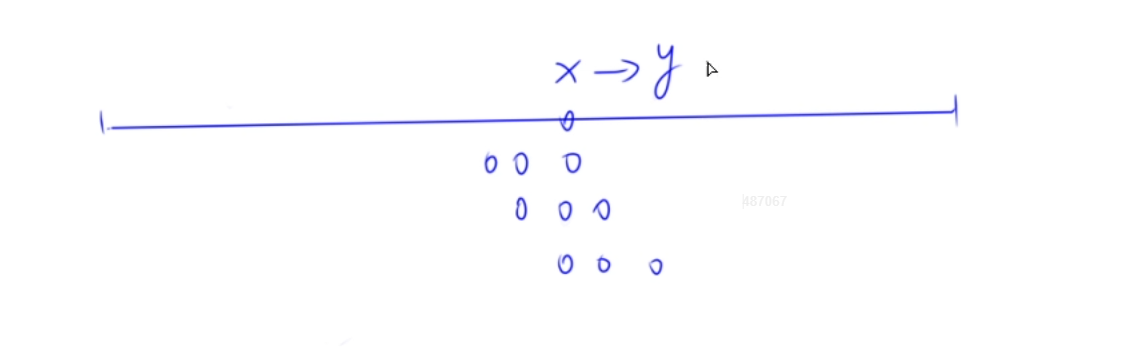 x → y
0
0 0 0
0 0 0
0 0 0
487067